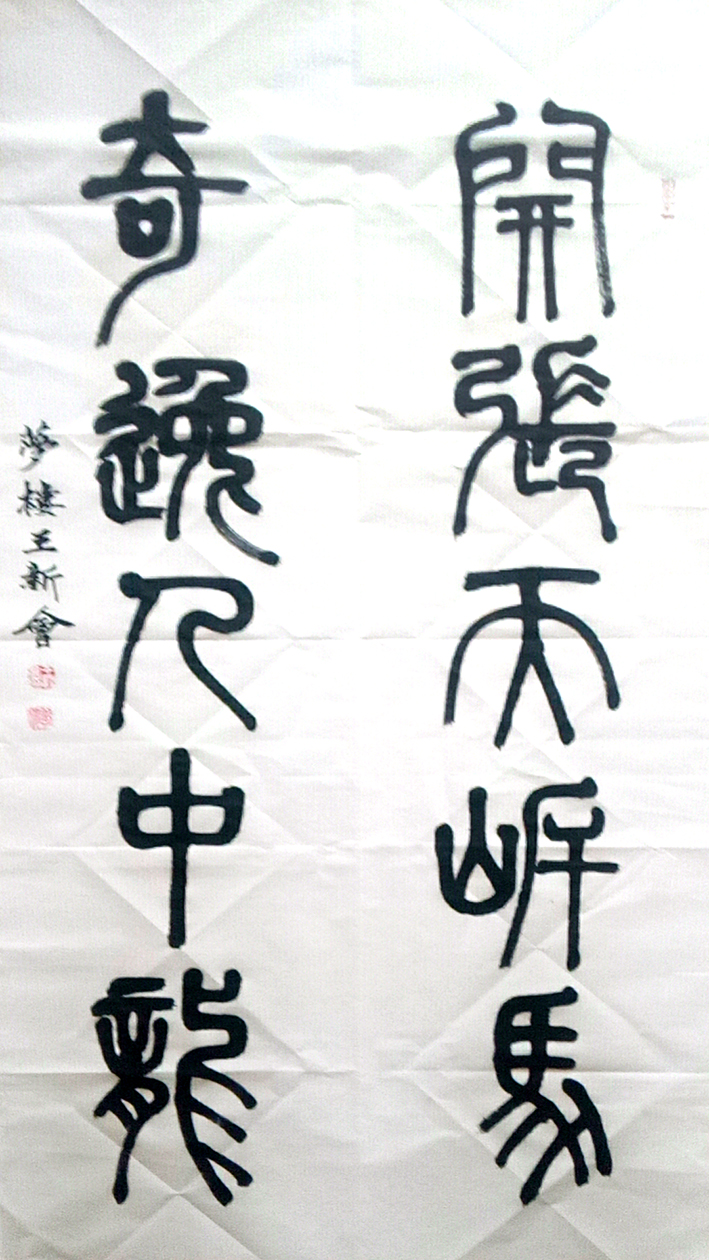 開張天岸馬
奇逸人中龍
夢樓王新會